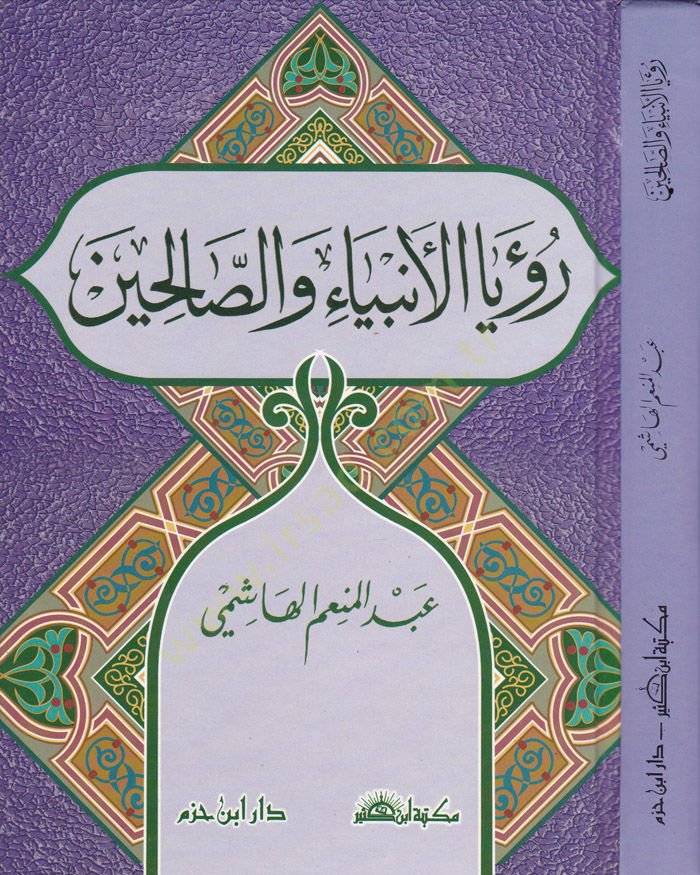 رُؤيَا الأَنبِيَاءِ وَالصَّالِحِينَ
عبد المنعم الهاشمي
مكتبة ابن كثير
دار ابن حزم
رؤيا الأنبياء والصالحين
عبد المنعم الهاشمي
مكتبة ابن كثير – دار ابن حزم